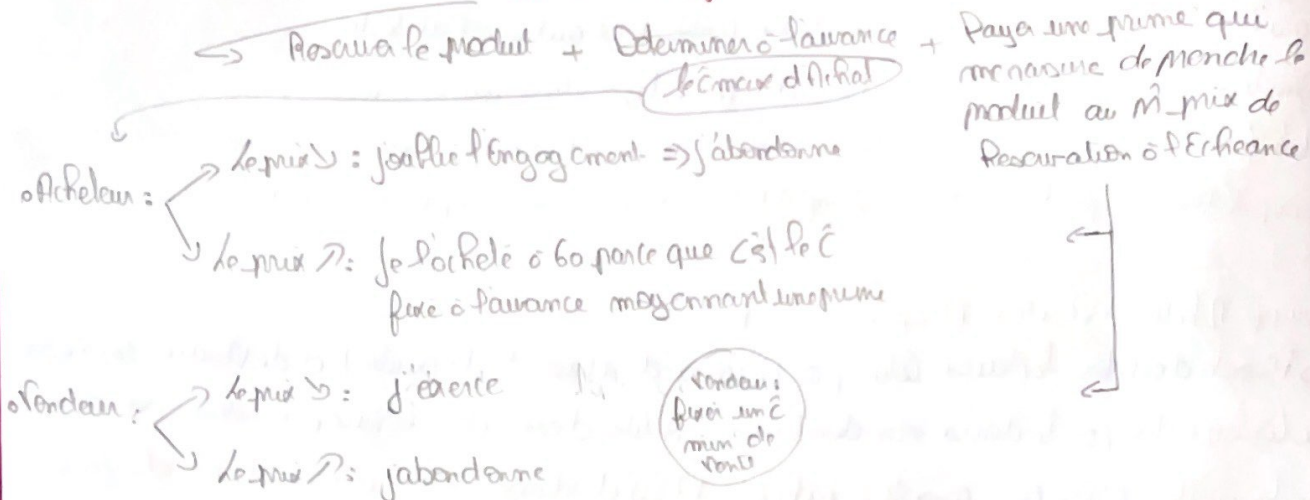 → Réserver le produit + Déterminer à l'avance + Payer une prime qui
le ĉ max d'Achat
m'assure de prendre le
produit au m̂ prix de
Réservation à l'Echéance
• Acheteur :
Le prix ↘ : j'oublie l'Engagement ⇒ j'abandonne
Le prix ↗ : Je l'achète à 60 parce que c'est le ĉ
fixé à l'avance moyennant une prime
• Vendeur :
Le prix ↘ : j'éxerce
Le prix ↗ : j'abandonne
Vendeur :
fixer un ĉ
min de
vente